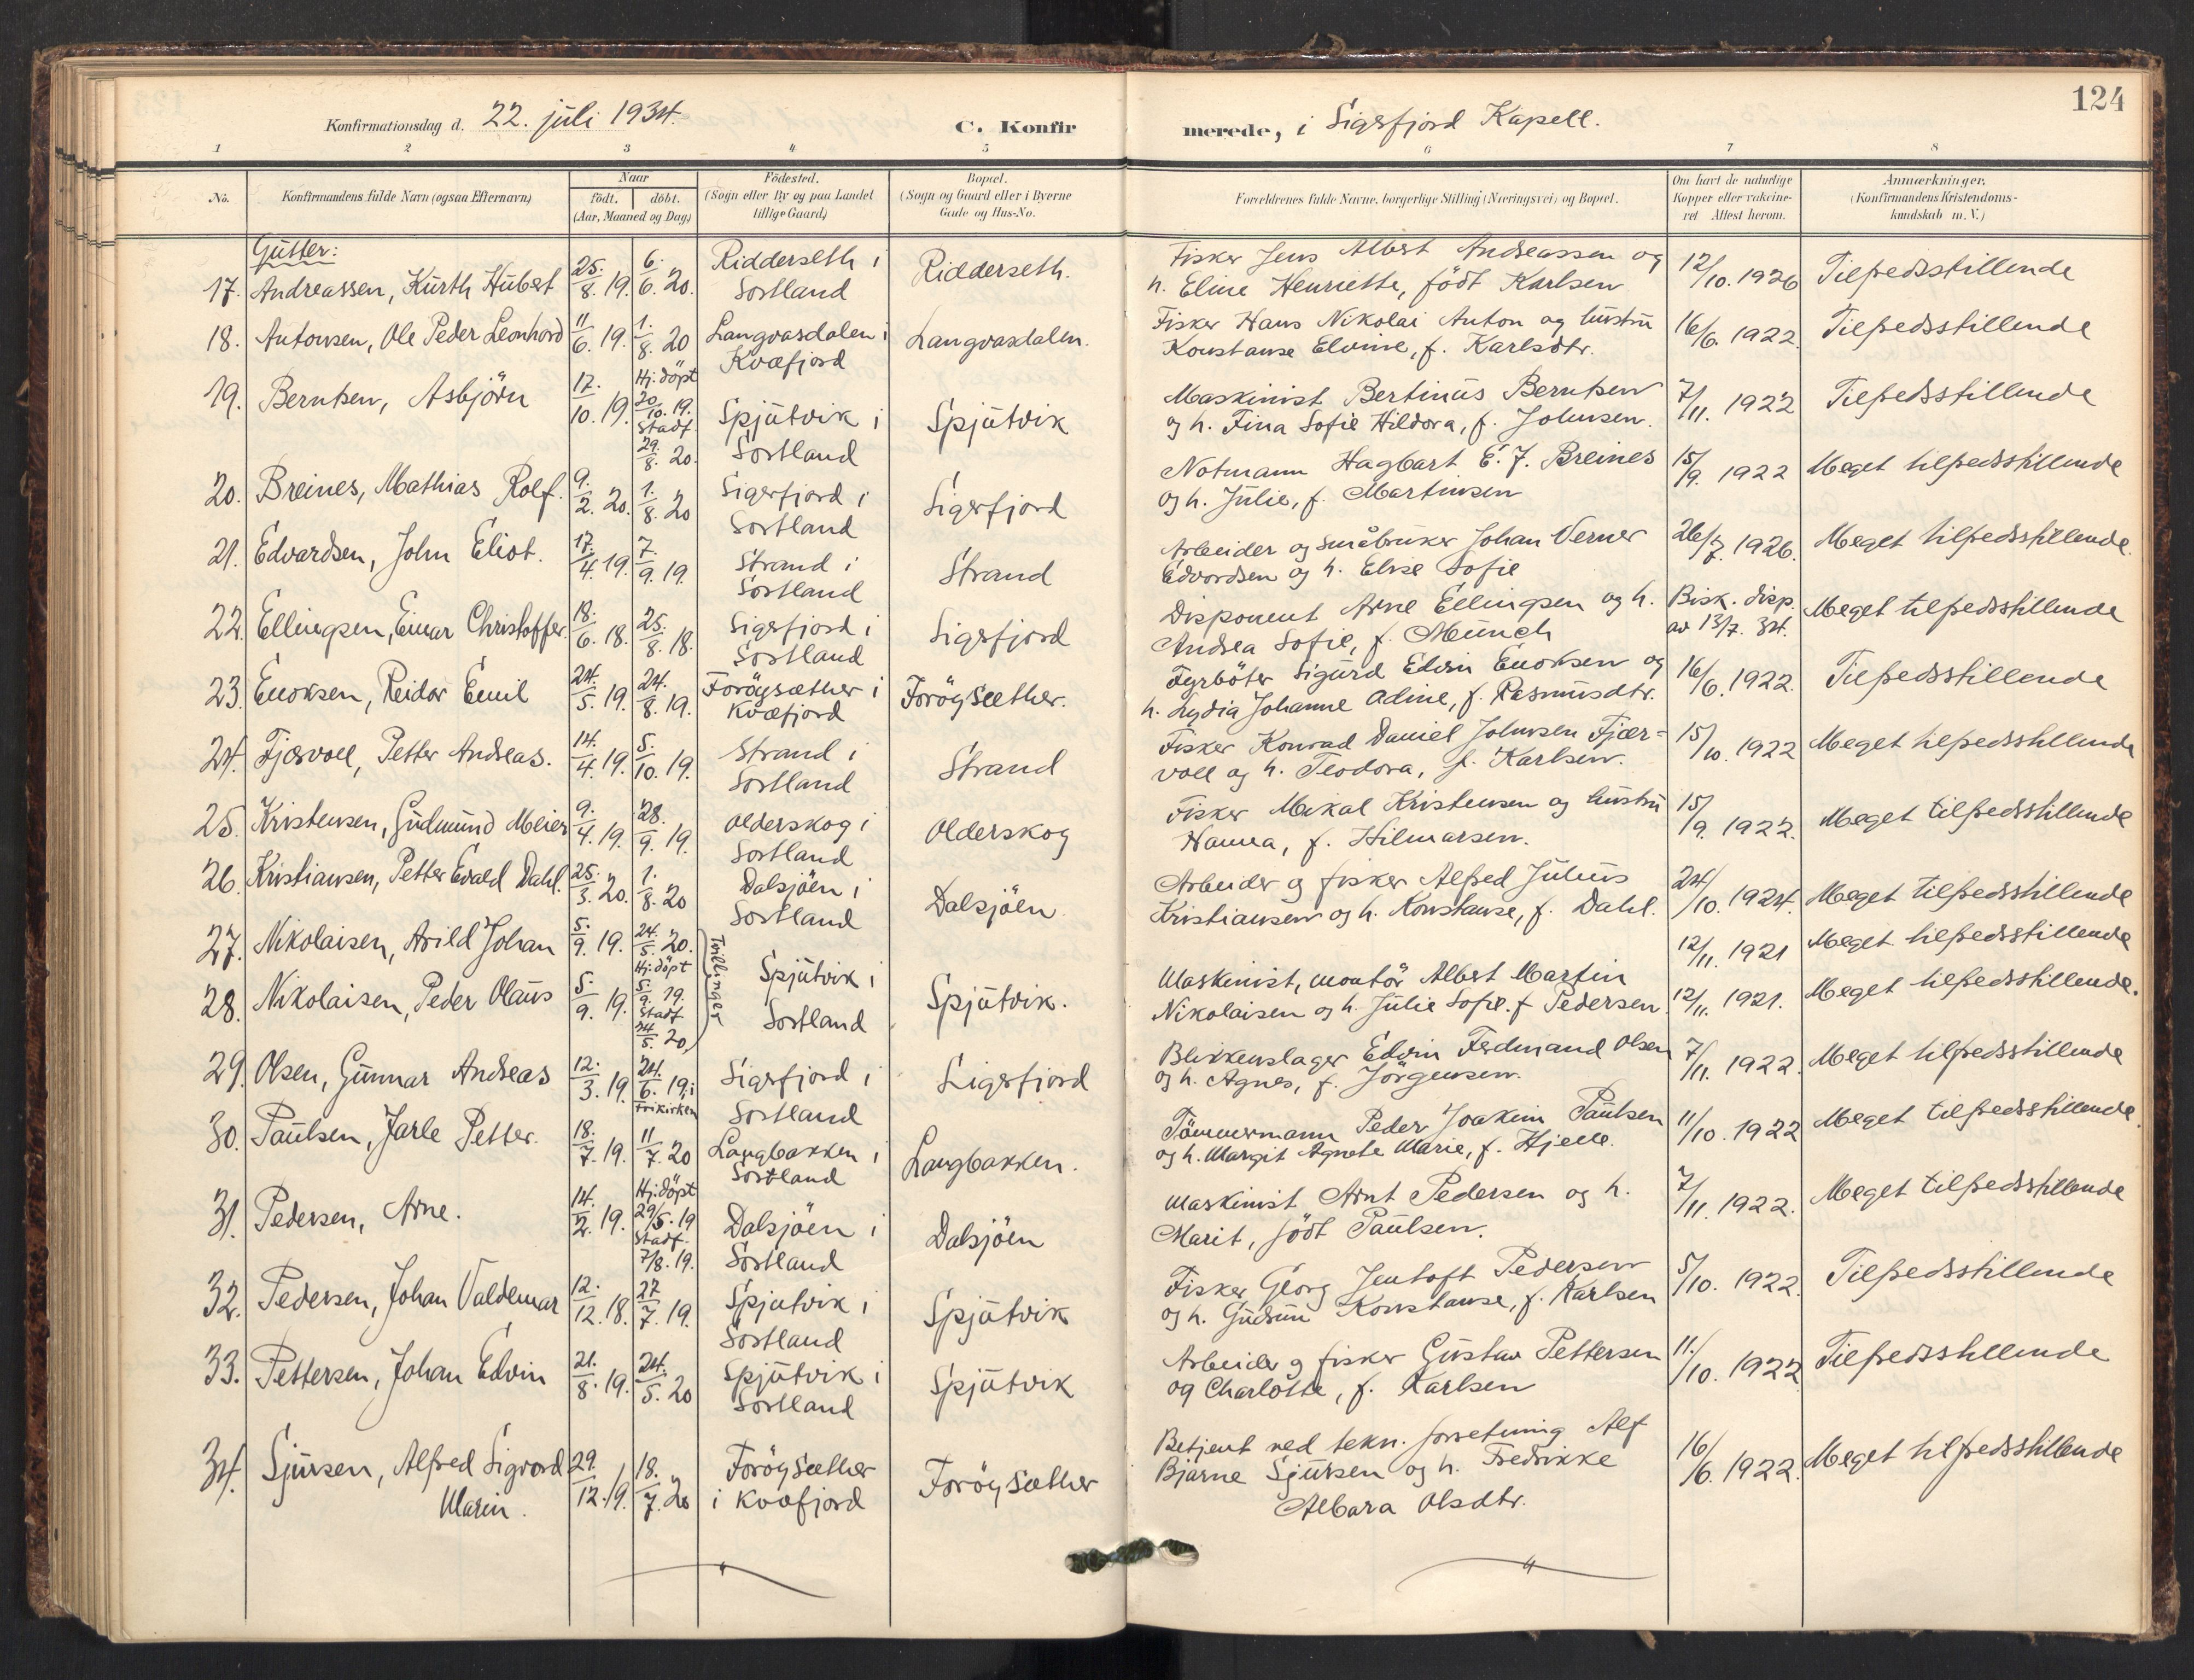 124
Konfirmationsdag d. 22. juli 1934. C. Konfirmerede, i Sigerfjord Kapell.
1 2 3 4 5 6 7 8
No. Konfirmandens fulde Navn (ogsaa Efternavn) Naar födt. döbt. (Aar, Maaned og Dag) Födested. (Sogn eller By og paa Landet tillige Gaard) Bopæl. (Sogn og Gaard eller i Byerne Gade og Hus-No. Forældrenes fulde Navne, borgerlige Stilling (Næringsvei) og Bopæl. Om havt de naturlige Kopper eller vakcineret Attest herom. Anmærkninger. (Konfirmandens Kristendomskundskab m. V.)
Gutter:
17. Andreassen, Kurth Hubert 25./8. 19. 6./6. 20. Ridderseth i Sortland Ridderseth. Fisker Jens Albert Andreassen og h. Eline Henriette, født Karlsen 12/10. 1926 Tilfredsstillende
18. Antonsen, Ole Peder Leonhard 11/6. 19. 1./8. 20 Langvasdalen i Kvæfjord Langvasdalen. Fisker Hans Nikolai Anton og hustru Konstanse Elvine, f. Karlsdtr. 16/6. 1922. Tilfredsstillende
19. Berntsen, Asbjörn 17./10. 19. Hj. döpt 20/10. 19. Stadf. 29./8. 20. Spjutvik i Sortland Spjutvik Maskinist Bertinus Berntsen og h. Fina Sofie Hildora, f. Johnsen. 7/11. 1922 Tilfredsstillende
20. Breines, Mathias Rolf. 9./2. 20. 1./8. 20 Sigerfjord i Sortland Sigerfjord Notmann Hagbart E. J. Breines og h. Julie, f. Martinsen 15/9. 1922 Meget tilfredsstillende
21. Edvardsen, John Eliot. 17./4. 19. 7./9. 19. Strand i Sortland Strand Arbeider og småbruker Johan Verner Edvardsen og h. Elise Sofie 26/7. 1926. Meget tilfredsstillende.
22. Ellingsen, Einar Christoffer 18./6. 18. 25./8. 18. Sigerfjord i Sortland Sigerfjord Disponent Arne Ellingsen og h. Andrea Sofie, f. Münch Bisk. disp. av 13/7. 34. Meget tilfredsstillende
23. Enoksen, Reidar Emil 24./5. 19. 24./8. 19. Foröysæther i Kvæfjord Foröysæther. Fyrböter Sigurd Edvin Enoksen og h. Lydia Johanne Adine, f. Rasmusdtr. 16/6. 1922. Tilfredsstillende
24. Fjærvoll, Petter Andreas. 14./4. 19. 5./10. 19. Strand i Sortland Strand Fisker Konrad Daniel Johnsen Fjær-voll og h. Teodora, f. Karlsen. 15/10. 1922 Meget tilfredsstillende
25. Kristensen, Gudmund Meier 9./4. 19. 28./9. 19. Olderskog i Sortland Olderskog Fisker Mikal Kristensen og hustru Hanna, f. Hilmarsen. 15/9. 1922. Meget tilfredsstillende
26. Kristiansen, Petter Evald Dahl. 25./3. 20. 1./8. 20 Dalsjöen i Sortland Dalsjöen. Arbeider og fisker Alfred Julius Kristiansen og h. Konstanse, f. Dahl. 24/10. 1924. Meget tilfredsstillende
27. Nikolaisen, Arild Johan 5./9. 19. 24./5. 20. Tvillinger Spjutvik i Sortland Spjutvik. Maskinist, montör Albert Martin Nikolaisen og h. Julie Sofie. f. Pedersen 12/11. 1921 Meget tilfredsstillende
28. Nikolaisen, Peder Olaus 5./9. 19. Hj. döpt 5./9. 19. Stadf. 24./5. 20. 12/11. 1921. Meget tilfredsstillende.
29. Olsen, Gunnar Andreas 12./3. 19. 24./6. 19. i Frikirken Sigerfjord i Sortland Sigerfjord Blikkenslager Edvin Ferdinand Olsen og h. Agnes, f. Jörgensen. 7/11. 1922. Meget tilfredsstillende
30. Paulsen, Jarle Petter. 18./7. 19. 11/7. 20 Langbakken i Sortland Langbakken. Tömmermann Peder Joakim Paulsen og h. Margit Agnete Marie, f. Hjelle. 11/10. 1922 Meget tilfredsstillende.
31. Pedersen, Arne. 14./2. 19. Hj. döpt 29/5. 19 Stadf. 7/8. 19. Dalsjöen i Sortland Dalsjöen Maskinist Arnt Pedersen og h. Marit, født Paulsen. 7/11. 1922. Meget tilfredsstillende
32. Pedersen, Johan Valdemar 12./12. 18. 27/7. 19. Spjutvik i Sortland Spjutvik Fisker Georg Jentoft Pedersen og h. Gudrun Konstanse, f. Karlsen 5/10. 1922. Tilfredsstillende
33. Pettersen, Johan Edvin 21./8. 19. 24./5. 20 Spjutvik i Sortland Spjutvik Arbeider og fisker Gustav Pettersen og Charlotte, f. Karlsen 11./10. 1922 Tilfredsstillende
34. Sjursen, Alfred Sigvard Marin. 29./12. 19. 18./7. 20 Foröysæther i Kvæfjord Foröysæther Betjent ved tekn. forretning Alf Bjarne Sjursen og h. Fredrikke Albara Olsdtr. 16/6. 1922. Meget tilfredsstillende